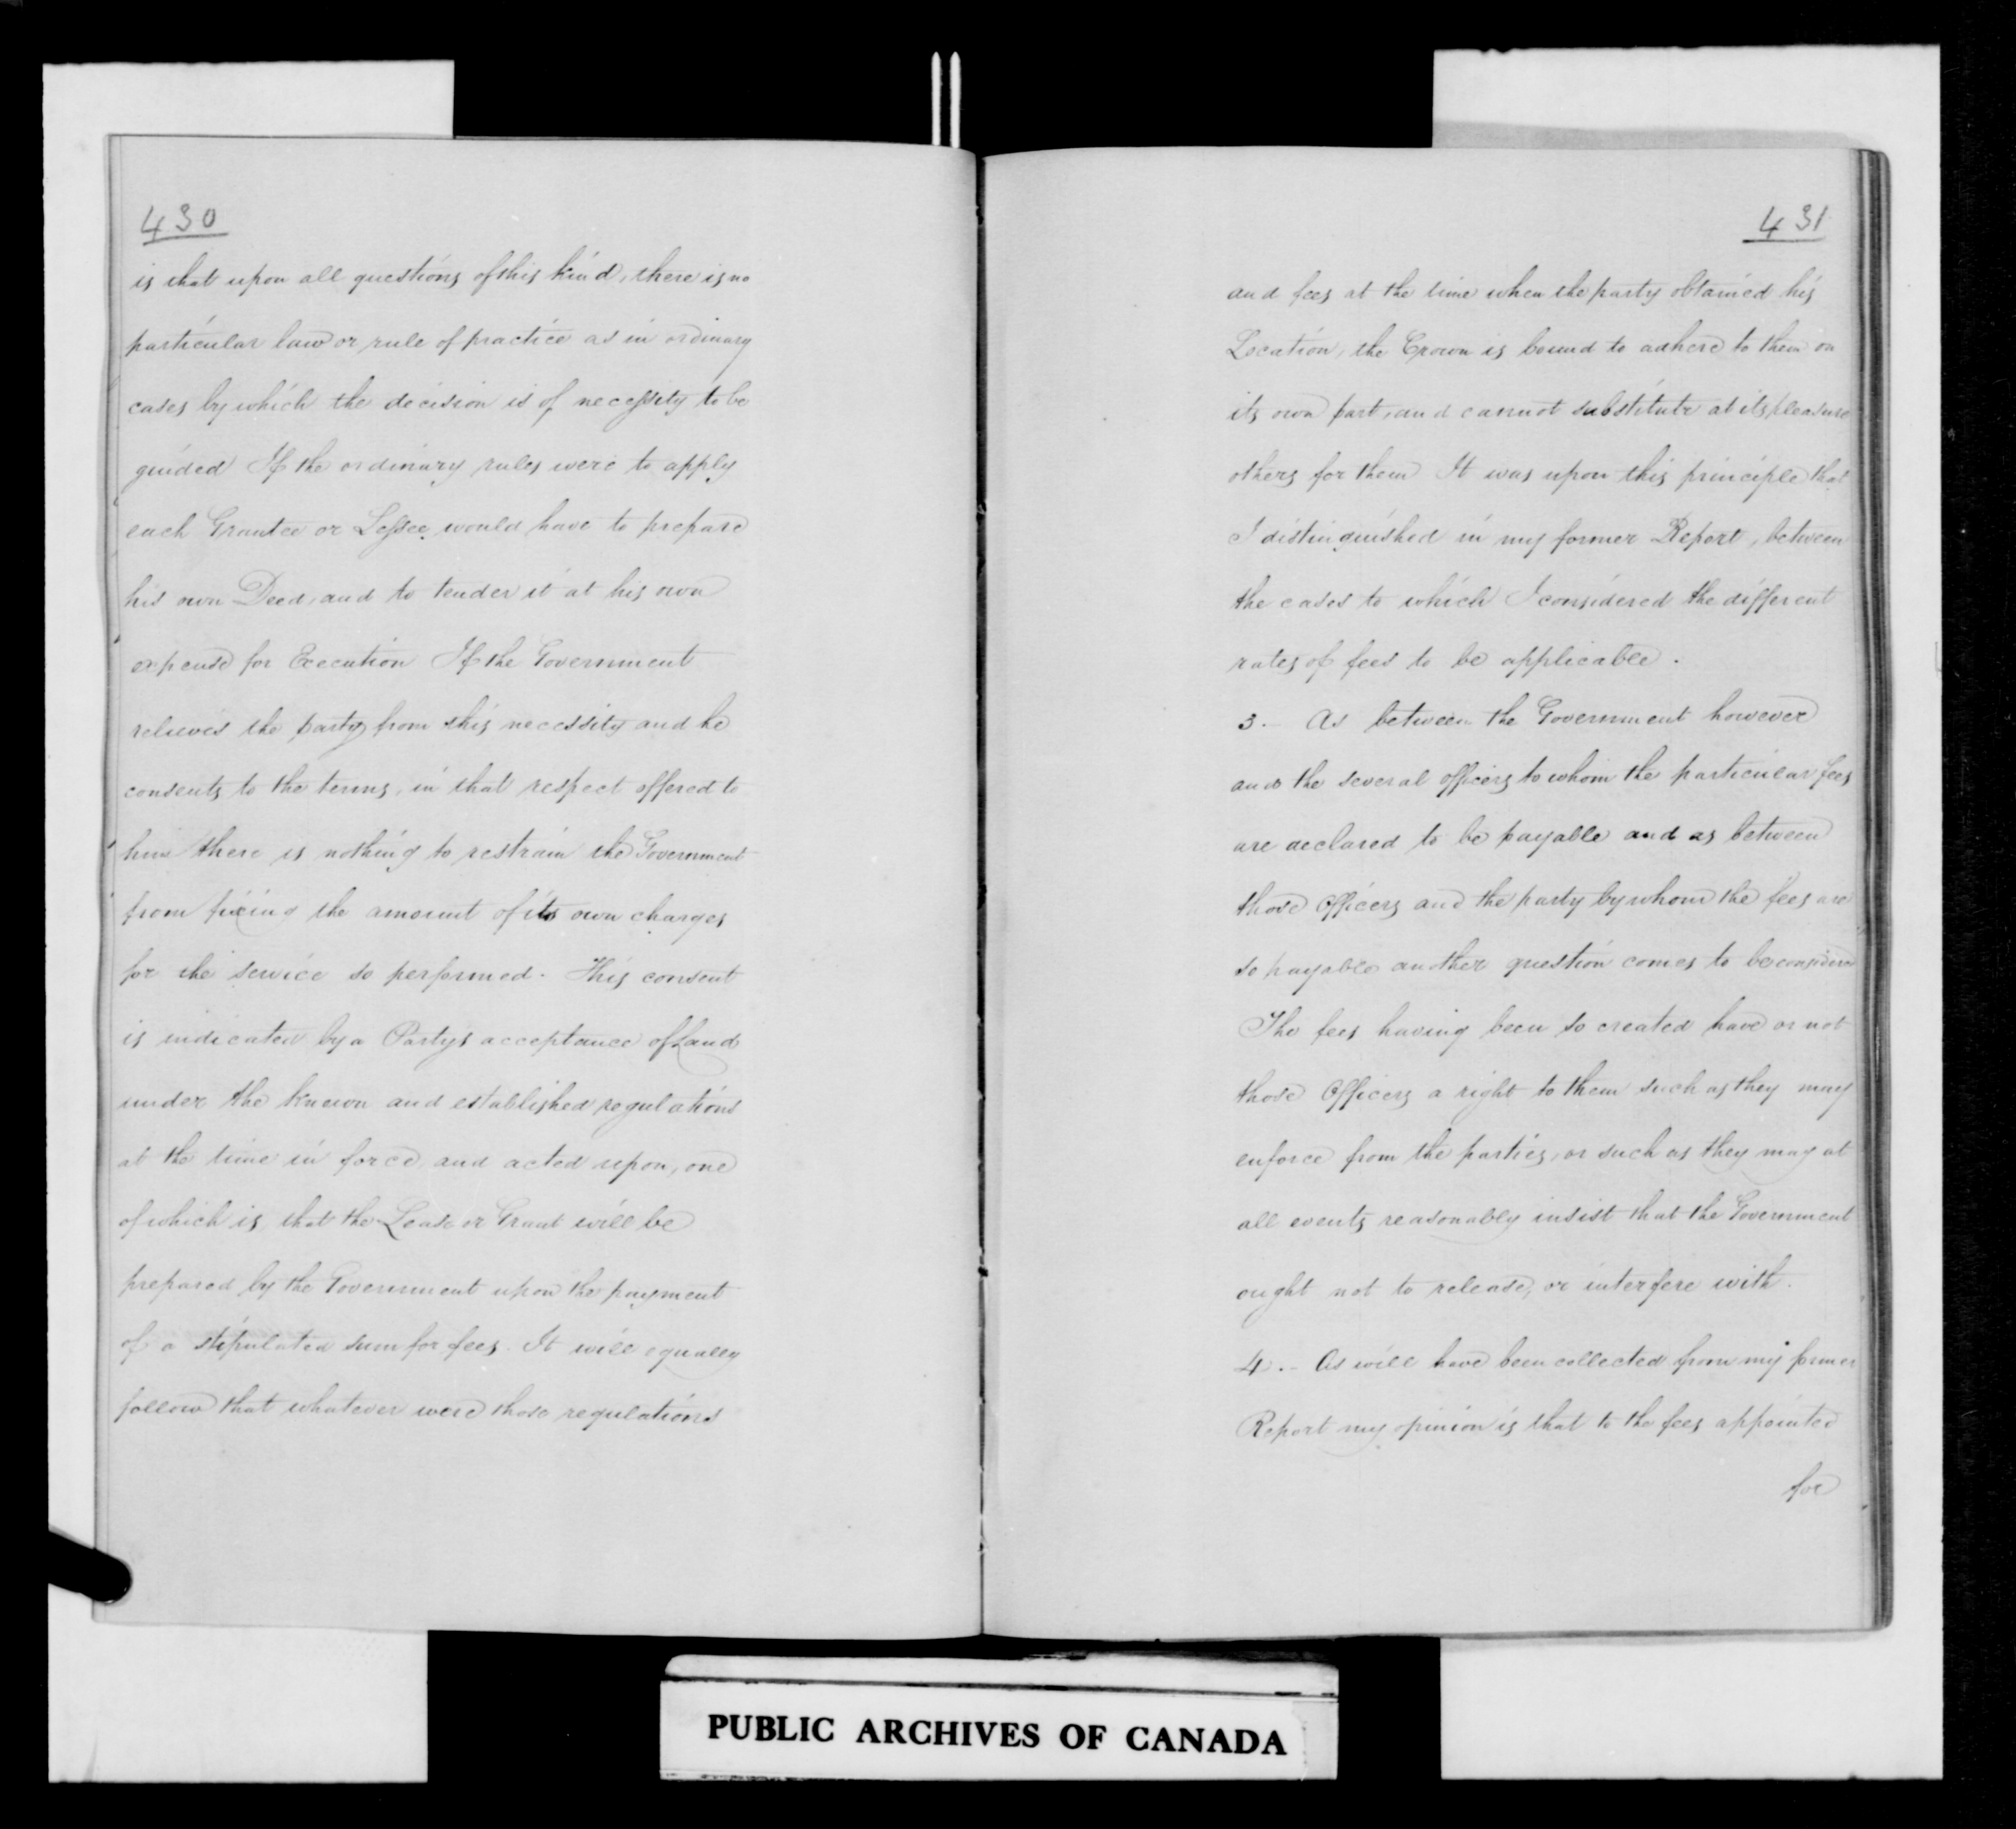 430
is that upon all questions of this kind, there is no
particular law or rule of practice as in ordinary
cases by which the decision is of necessity to be
guided If the ordinary rules were to apply
each Grantee or Lessee would have to prepare
his own Deed, and to tender it at his own
expense for Execution If the Government
relieves the party from this necessity and he
consents to the terms, in that respect offered to
him there is nothing to restrain the Government
from fixing the amount of its own charges
for the service so performed. This consent
is indicated by a Partys acceptance of Land
under the known and established regulations
at the time in force and acted upon, one
of which is, that the Lease or Grant will be
prepared by the Government upon the payment
of a stipulated sum for fees. It will equally
follow that whatever were those regulations
431
and fees at the time when the party obtained his
Location, the Crown is bound to adhere to them on
its own part, and cannot substitute at its pleasure
others for them It was upon this principle that
I distinguished in my former Report, between
the cases to which I considered the different
rates of fees to be applicable.
3. - As between the Government however
and the several officers to whom the particular fees
are declared to be payable and as between
those Officers and the party by whom the fees are
so payable another question comes to be considered
The fees having been so created have or not
those Officers a right to them such as they may
enforce from the parties, or such as they may at
all events reasonably insist that the Government
ought not to release, or interfere with.
4. - As will have been collected from my former
Report my opinion is that to the fees appointed
for
PUBLIC ARCHIVES OF CANADA